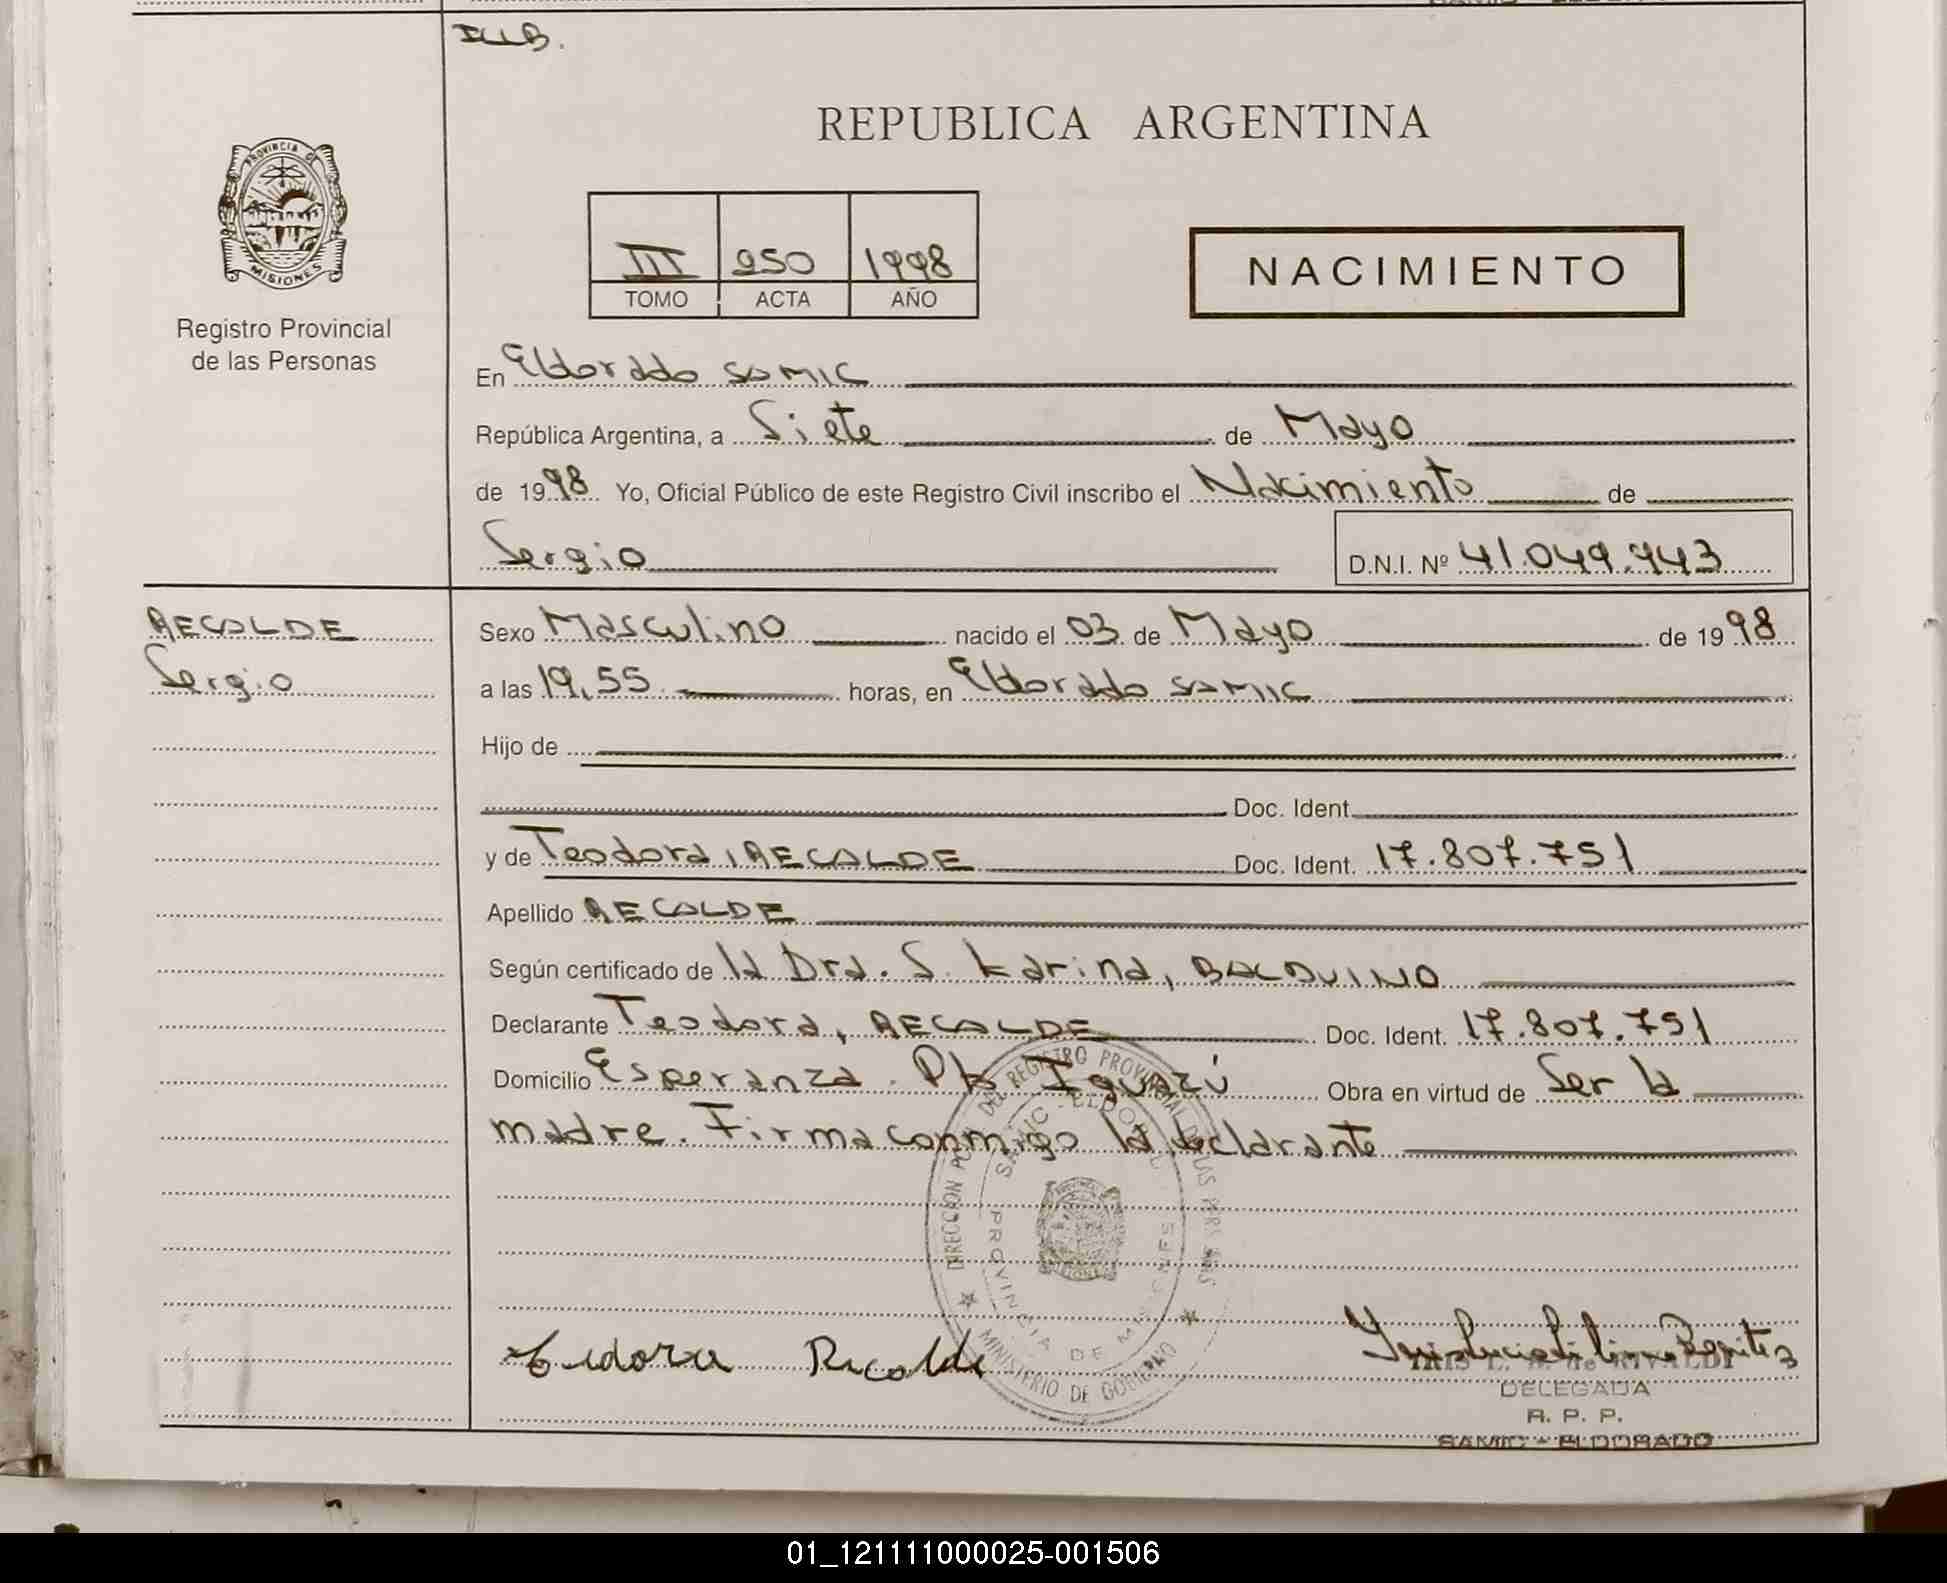 ILLB.
REPUBLICA ARGENTINA
PROVINCIA DE
MISIONES
Registro Provincial
de las Personas
III 250 1998
TOMO ACTA AÑO
NACIMIENTO
En Eldorado SAMIC
República Argentina, a Siete de Mayo
de 1998 Yo, Oficial Público de este Registro Civil inscribo el Nacimiento de
Sergio D.N.I. Nº 41.049.943
RECALDE
Sergio
Sexo Masculino nacido el 03 de Mayo de 1998
a las 19,55 horas, en Eldorado SAMIC
Hijo de
Doc. Ident.
y de Teodora, RECALDE Doc. Ident. 17.807.751
Apellido RECALDE
Según certificado de la Dra. S. Karina, BALDUINO
Declarante Teodora, RECALDE Doc. Ident. 17.807.751
Domicilio Esperanza. Pto Iguazú Obra en virtud de Ser la
madre. Firma conmigo la declarante
DIRECCION DEL REGISTRO PROVINCIAL DE LAS PERSONAS
SAMIC - ELDORADO
PROVINCIA DE MISIONES
MINISTERIO DE GOBIERNO
Teodora Recalde
DELEGADA
R. P. P.
SAMIC - ELDORADO
01_121111000025-001506